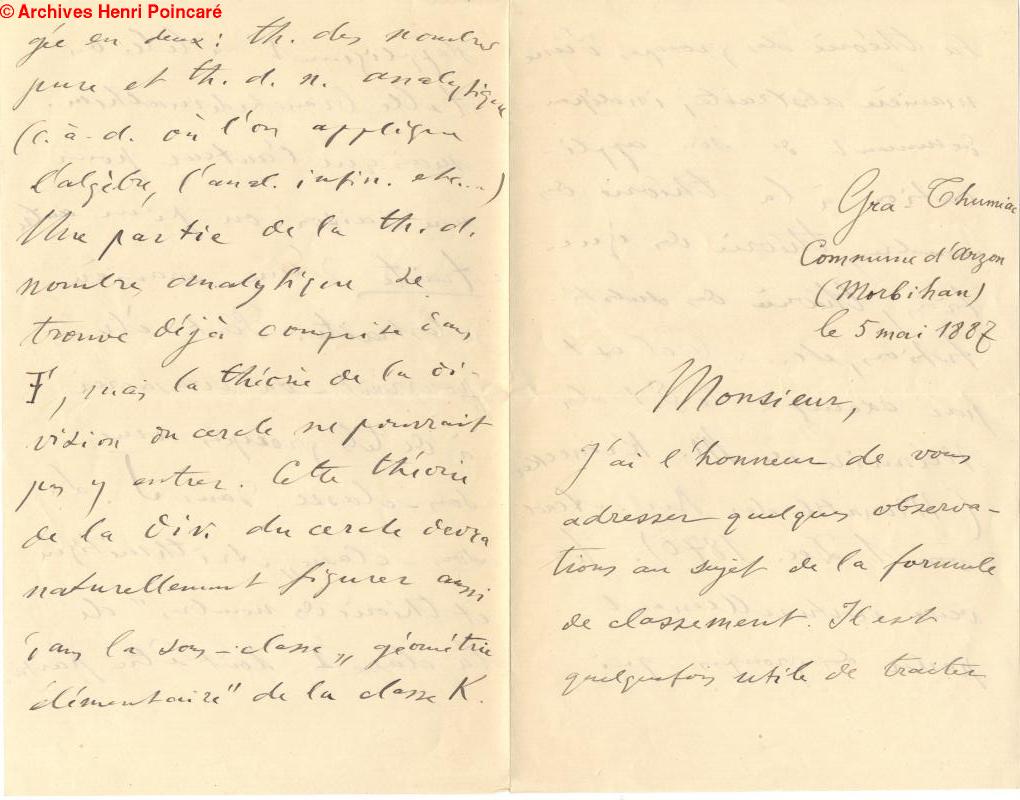 © Archives Henri Poincaré
gée en deux : th. des nombres
pure et th. d. n. analytique
(c.à-d. où l'on applique
l'algèbre, l'anal. infin. etc...)
Une partie de la th. d.
nombres analytique se
trouve déjà comprise dans
I', mais la théorie de la di-
vision du cercle ne pourrait
pas y entrer. Cette théorie
de la div. du cercle devra
naturellement figurer aussi
dans la sous-classe „géométrie
élémentaire" de la classe K.
Gra Thumiac
Commune d'Arzon
(Morbihan)
le 5 mai 1887
Monsieur,
J'ai l'honneur de vous
adresser quelques observa-
tions au sujet de la formule
de classement. Il est
quelquefois utile de traiter